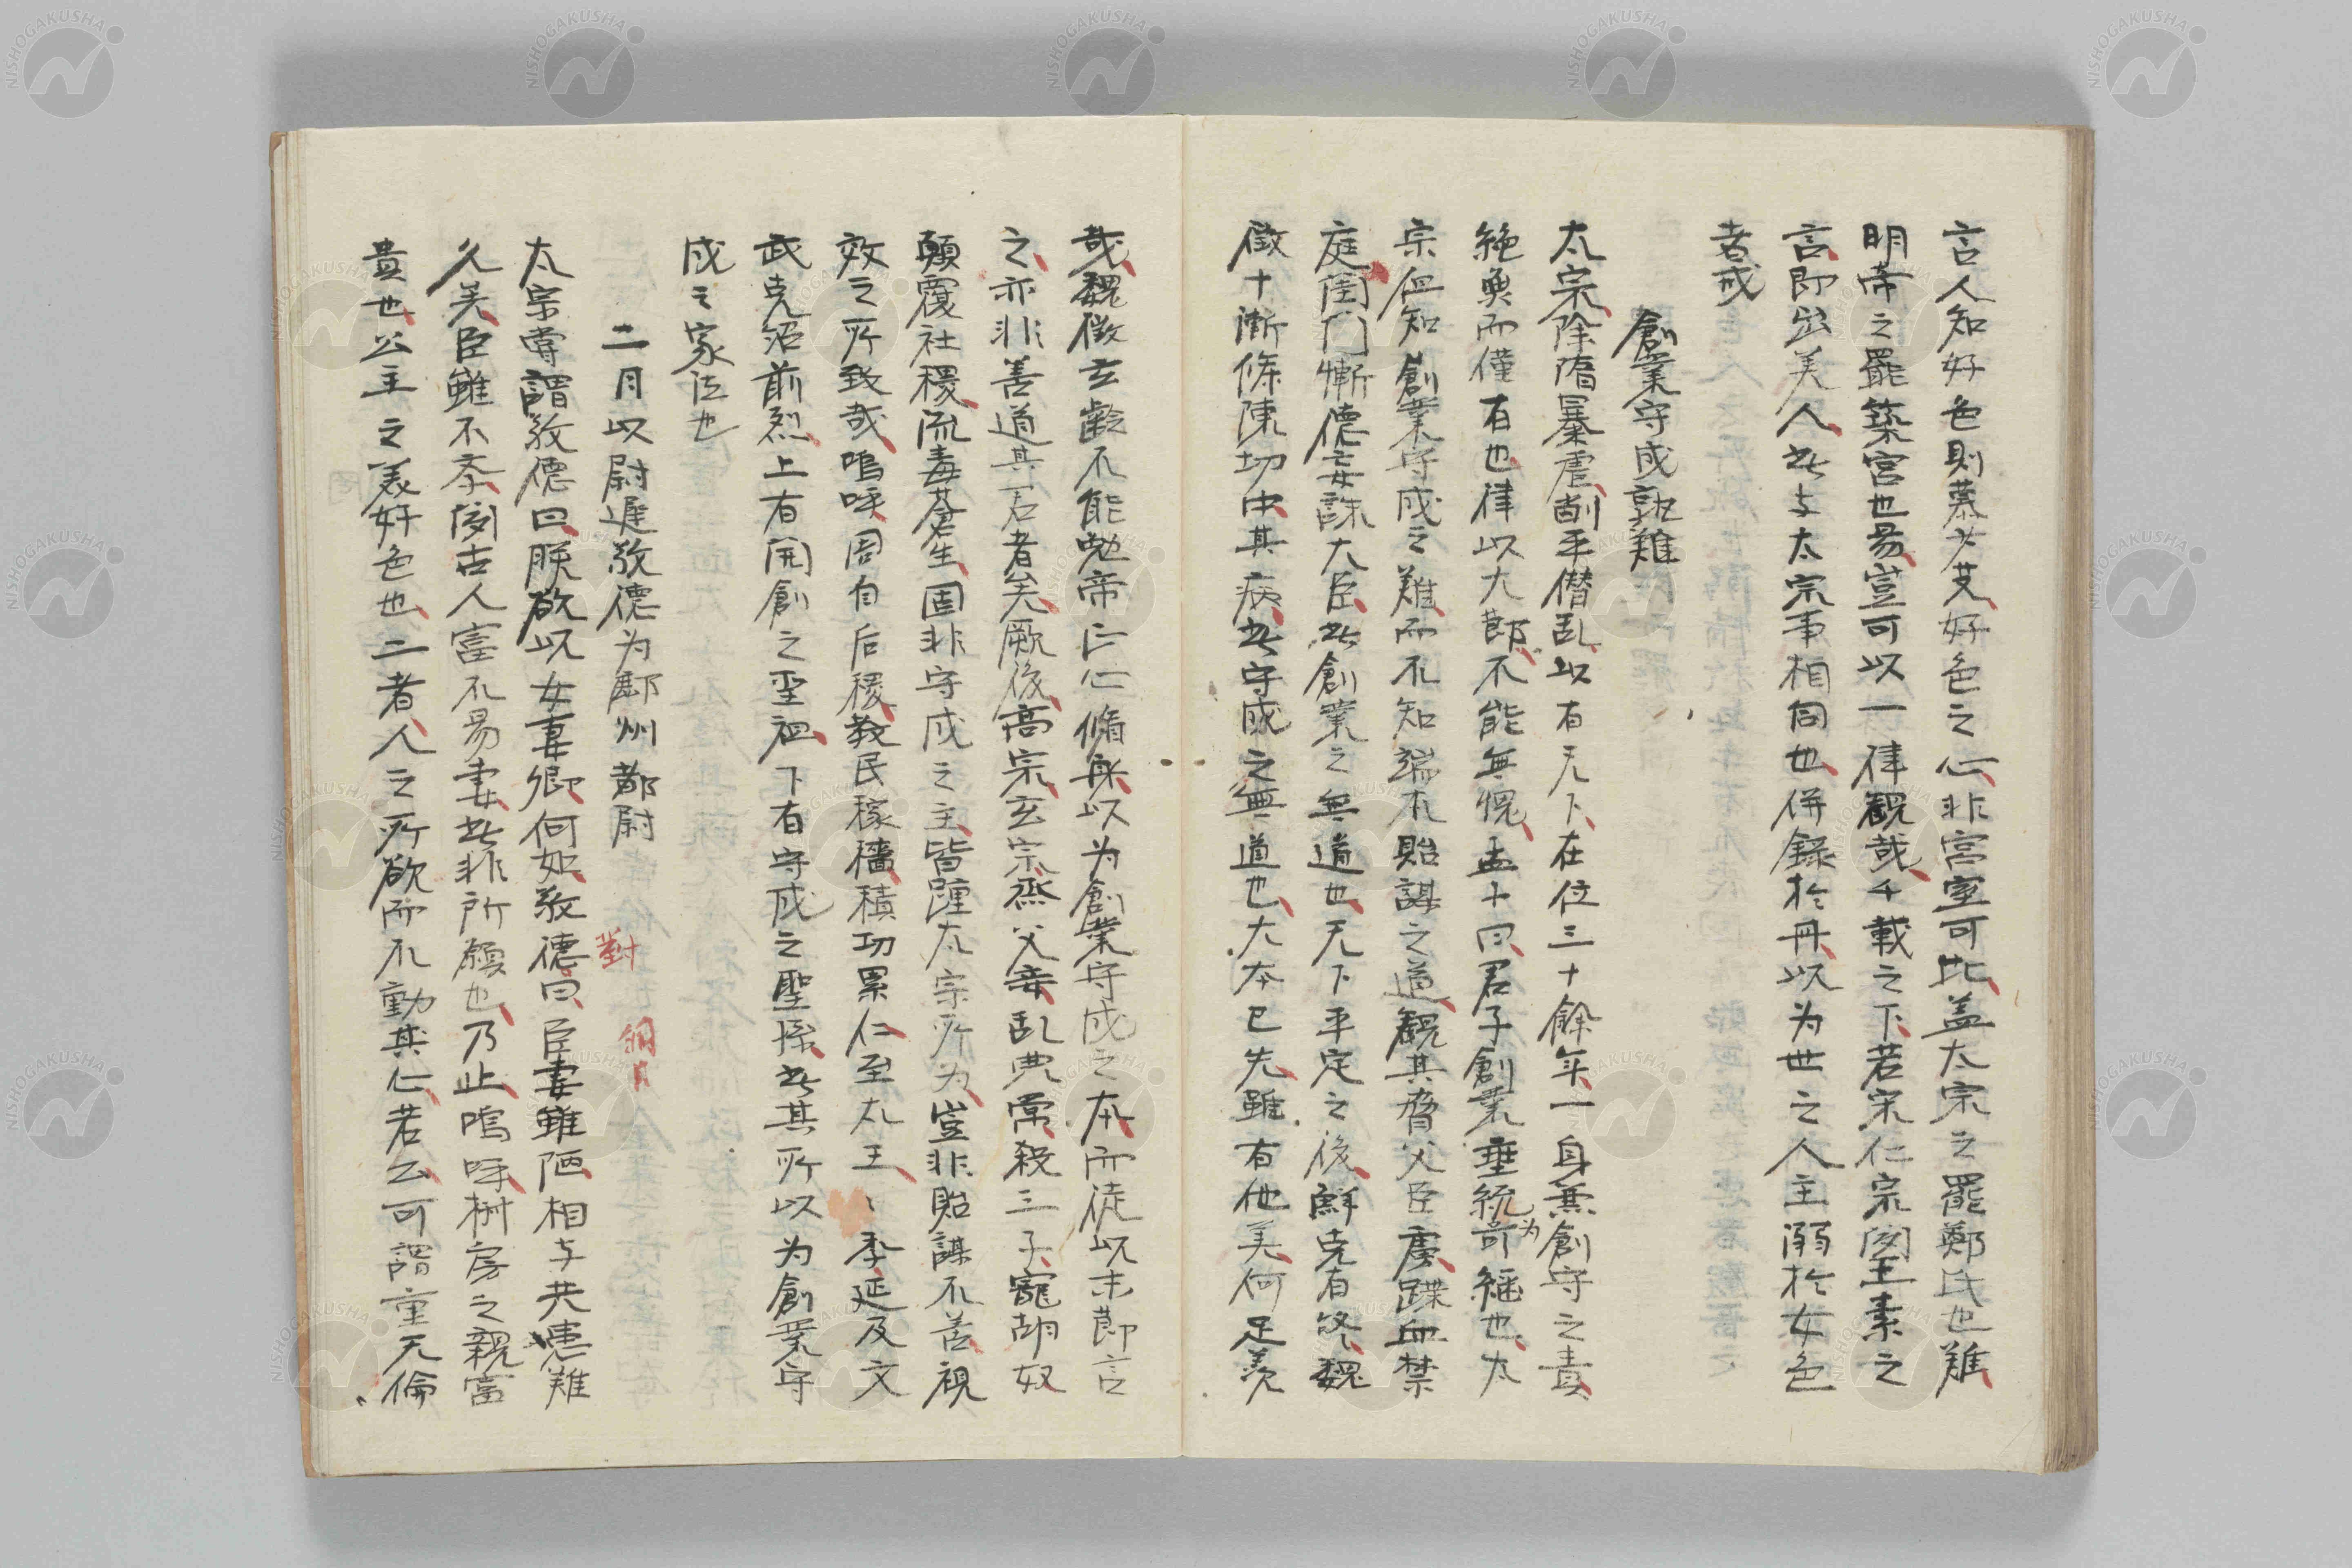 古人知好色則慕少艾好色之心非宮室可比蓋太宗之罷鄭氏也難
明帝之罷築宮也易豈可以一律觀哉千載之下若宋仁宗閔王素之
言即出美人此与太宗事相同也併録於冊以为世之人主溺於女色
者戒
創業守成孰難
太宗除隋暴虐削平僭乱以有天下在位三十餘年一身兼創守之責
絶無而僅有也律以大節不能無愧孟子曰君子創業垂統为可継也太
宗但知創業守成之難而不知端本貽謀之道観其脅父臣虜蹀血禁
庭閨門慚徳妄誅大臣此創業之無道也天下平定之後鮮克有終魏
徴十漸條陳切中其病此守成之無道也大本已先雖有他美何足羨
哉魏徴玄齢不能勉帝正心脩身以为創業守成之本而徒以末節言
之亦非善道其君者矣厥後高宗玄宗烝父妾乱典常殺三子寵胡奴
顛覆社稷流毒蒼生固非守成之主皆踵太宗所为豈非貽謀不善視
效之所致哉嗚呼周自后稷教民稼穡積功累仁至太王々季延及文
武克紹前烈上有開創之聖祖下有守成之聖孫此其所以为創業守
成之家法也
二月以尉遅敬徳为鄜州都尉
太宗嘗謂敬徳曰朕欲以女妻卿何如敬徳曰臣妻雖陋相与共患難
對
久矣臣雖不孝聞古人富不易妻此非所願也乃止嗚呼椒房之親富
貴也公主之美好色也二者人之所欲而不動其心若公可謂重天倫